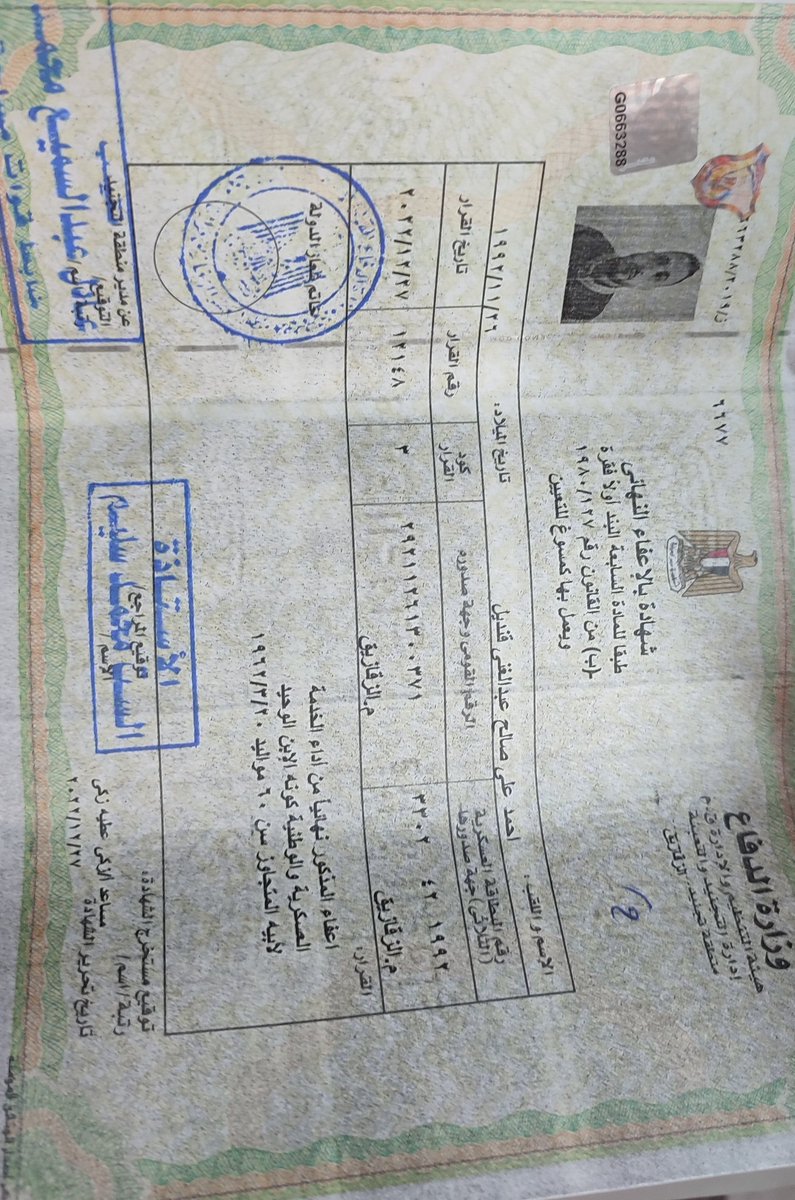 وزارة الدفاع
هيئة التنظيم والإدارة ق.م
إدارة التجنيد والتعبئة
منطقة تجنيد الزقازيق
٦٦٧٧
G0663288
شهادة بالإعفاء النهائى
طبقا للمادة السابعة البند اولا فقرة
(ب) من القانون رقم ١٩٨٠/١٢٧
ويعمل بها كمسوغ للتعيين
الاسم واللقب: احمد على صالح عبدالغنى قنديل تاريخ الميلاد: ١٩٩٢/١١/٢٦
رقم البطاقة العسكرية (الثلاثى) جهة صدورها الرقم القومى وجهة صدوره كود القرار رقم القرار تاريخ القرار
١٩٩٢ ٤٢ ٣٣٠٢ ٢٩٢١١٢٦١٣٠٠٣٧١ ٣ ١٢١٤٨ ٢٠٢٢/١٢/٢٧
م.الزقازيق م.الزقازيق
القرار:
اعفاء المذكور نهائياً من اداء الخدمة
العسكرية والوطنية كونه الإبن الوحيد
لأبيه المتجاوز سن ٦٠ مواليد ١٩٦٢/٣/٢٠
خاتم شعار الدولة
توقيع مستخرج الشهادة:
رتبة/اسم/ مساعد
تاريخ تحرير الشهادة ٢٠٢٢/١٢/٢٧
الأستاذة
توقيع المراجع)
الاسم
السيد محمد سليم
عن مدير منطقة التجنيد
التوقيع)
عبدالسميع محمد